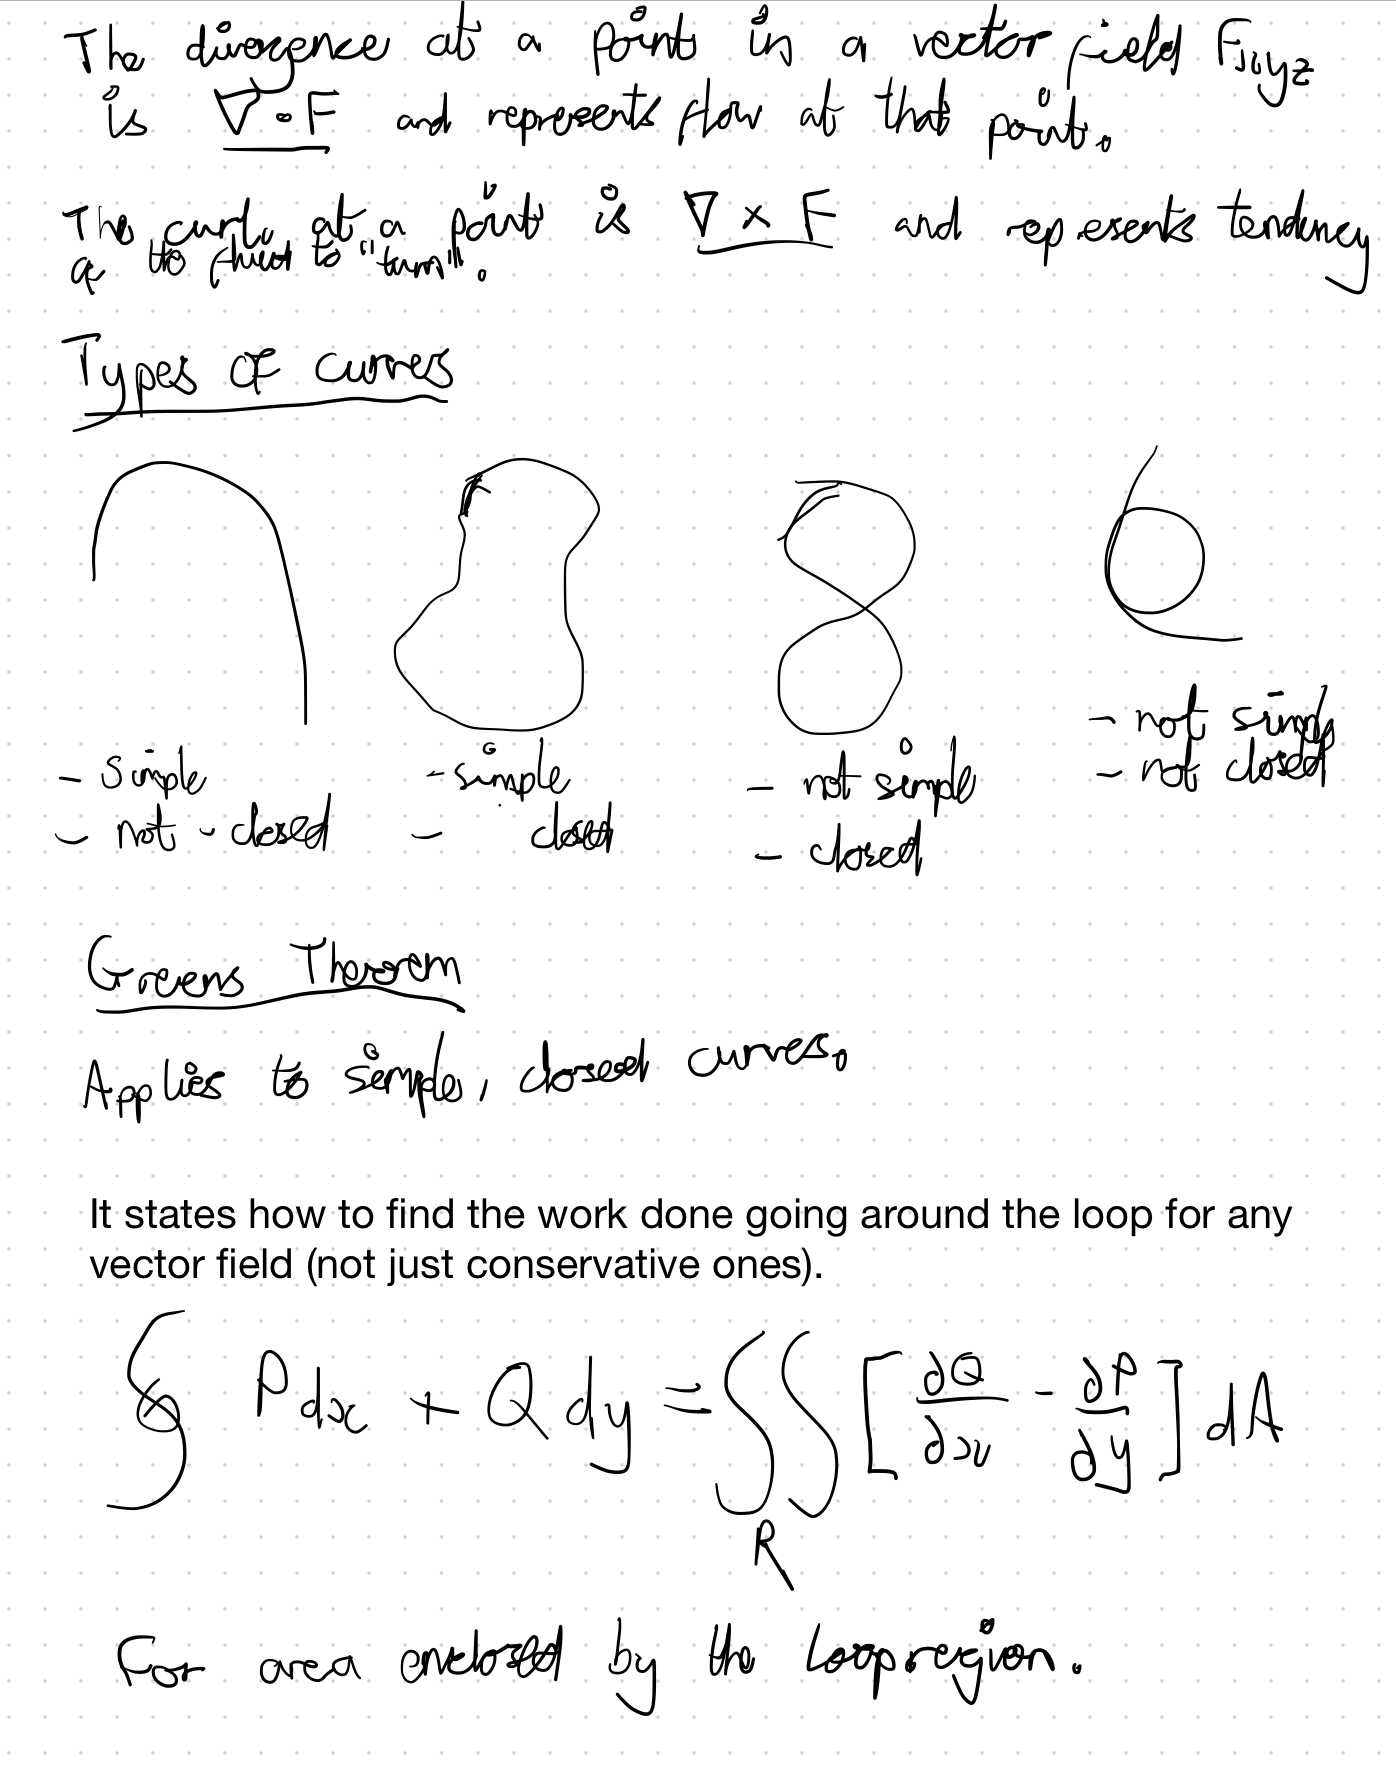 The divergence at a point in a vector field Fxyz
is ∇ · F and represents flow at that point.
The curl at a point is ∇ × F and represents tendency
of the fluid to "turn".
Types of curves
- simple
- not - closed
- simple
- closed
- not simple
- closed
- not simple
- not closed
Greens Theorem
Applies to simple, closed curves.
It states how to find the work done going around the loop for any
vector field (not just conservative ones).
∮ P dx + Q dy = ∬ [∂Q/∂x - ∂P/∂y] dA
R
For area enclosed by the loop region.